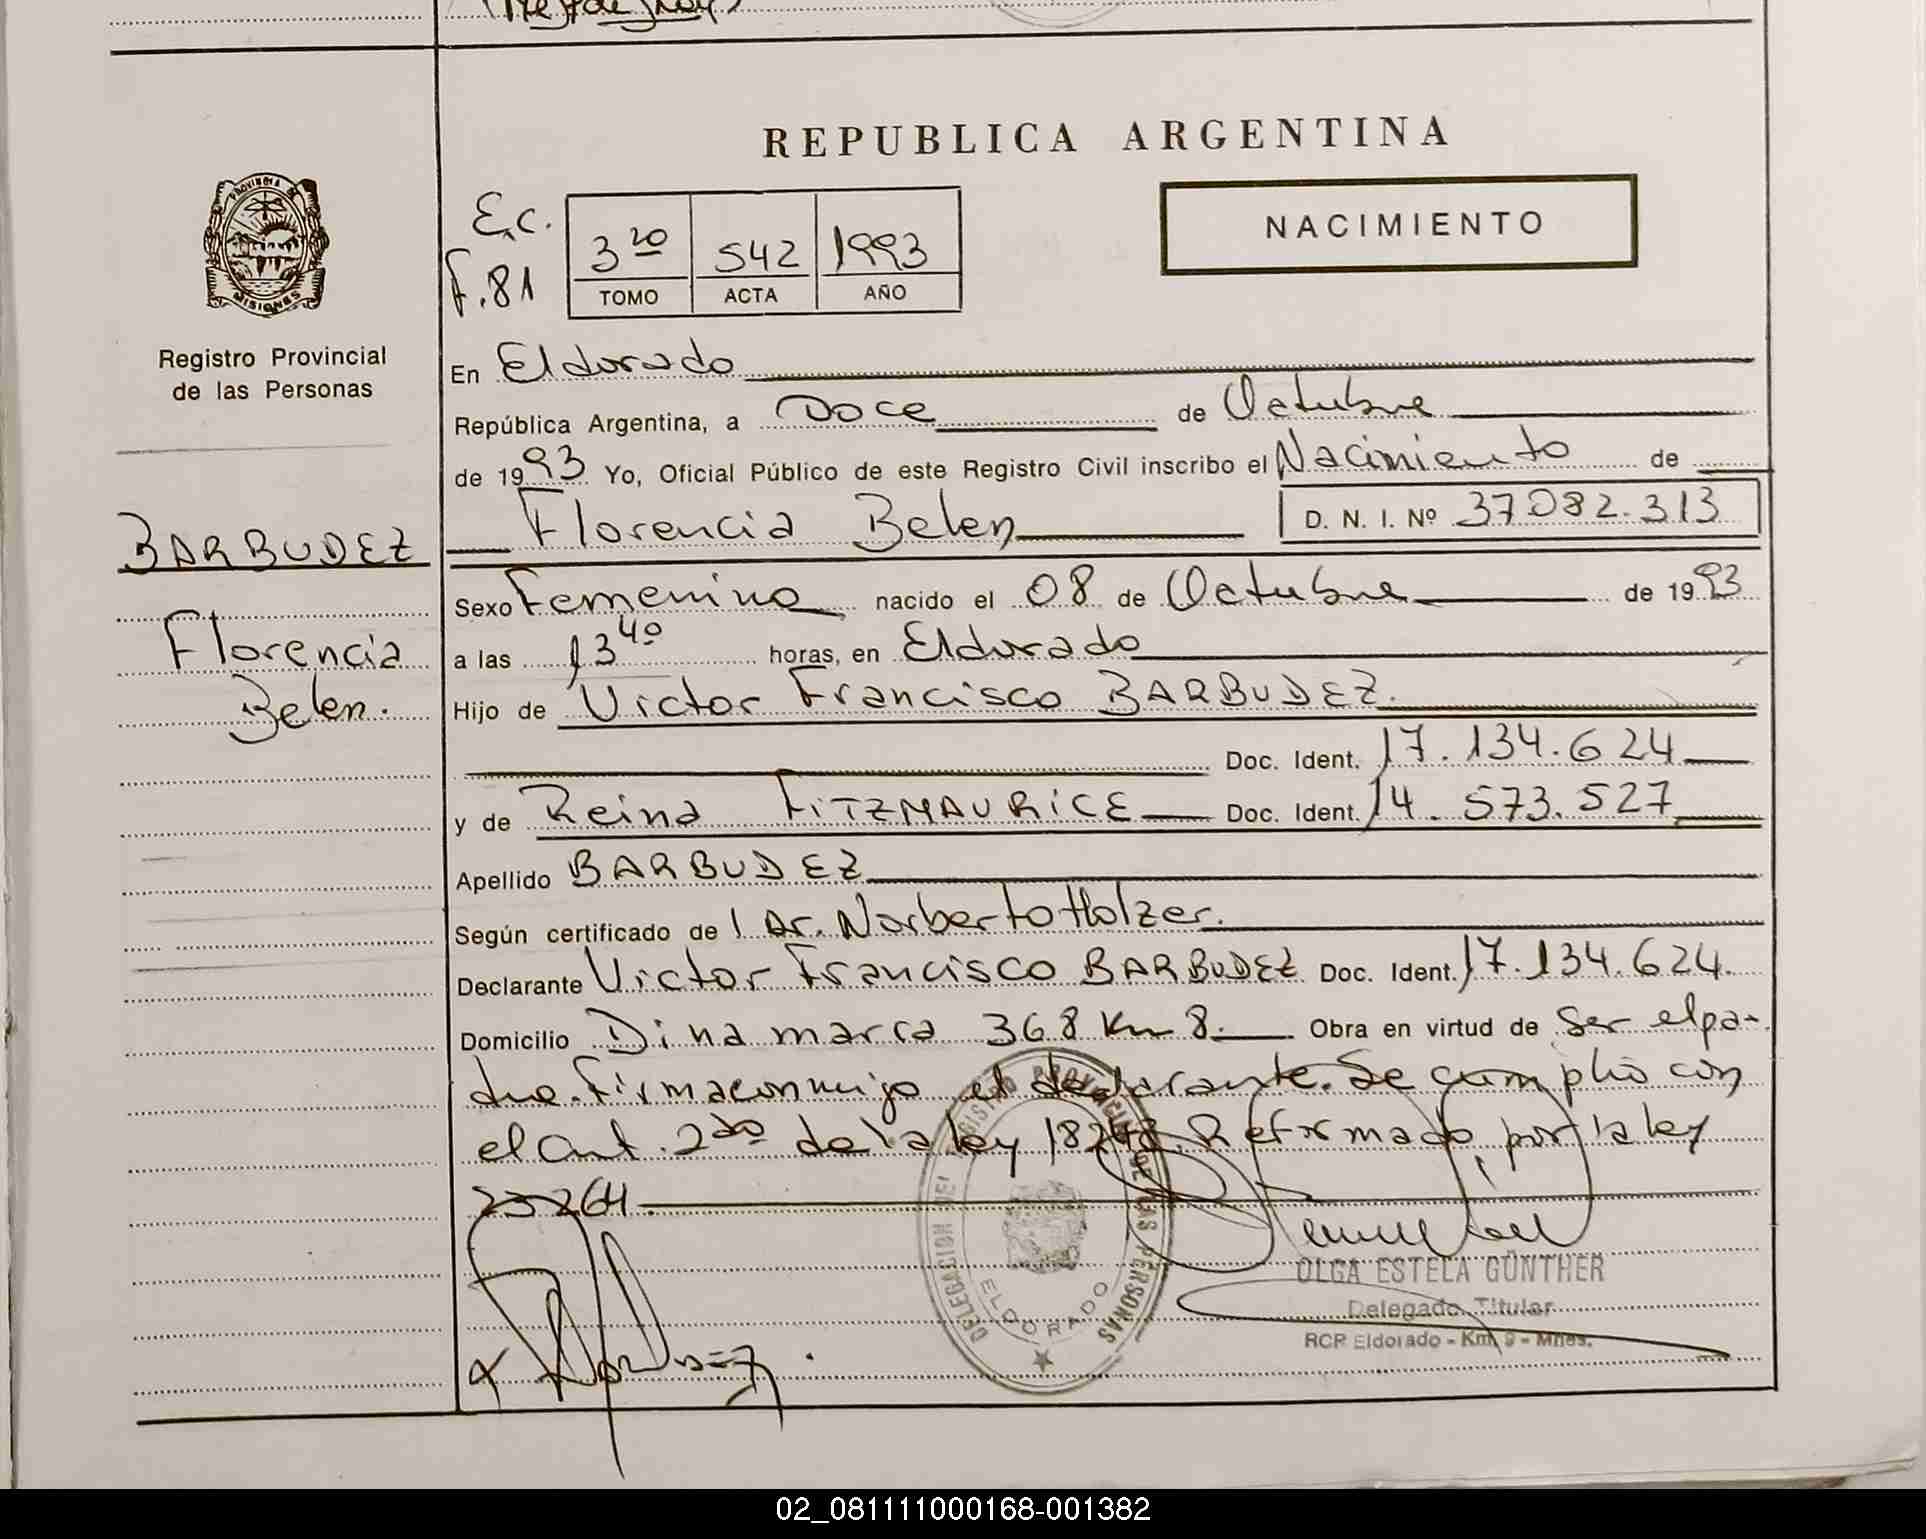 PROVINCIA DE
MISIONES
Registro Provincial
de las Personas
BARBUDEZ
Florencia
Belen.
REPUBLICA ARGENTINA
NACIMIENTO
E.c.
F.81
3 ro 542 1993
TOMO ACTA AÑO
En Eldorado
República Argentina, a Doce de Octubre
de 1993 Yo, Oficial Público de este Registro Civil inscribo el Nacimiento de
Florencia Belen D. N. I. Nº 37082.313
Sexo Femenino nacido el 08 de Octubre de 1993
a las 13 40 horas, en Eldorado
Hijo de Victor Francisco BARBUDEZ.
Doc. Ident. 17.134.624
y de Reina FITZMAURICE Doc. Ident. 14.573.527
Apellido BARBUDEZ
Según certificado de 1 Dr. Norberto Holzer.
Declarante Victor Francisco BARBUDEZ Doc. Ident. 17.134.624.
Domicilio Dinamarca 368 Km 8. Obra en virtud de Ser el pa-
dre. Firma conmigo el declarante. Se cumplió con
el art. 2do de la ley 18248 Reformado por la ley
23264.
DELEGACION DEL REGISTRO PROVINCIAL DE LAS PERSONAS
ELDORADO
OLGA ESTELA GÜNTHER
Delegado Titular
RCP Eldorado - Km. 9 - Mnes.
02_081111000168-001382